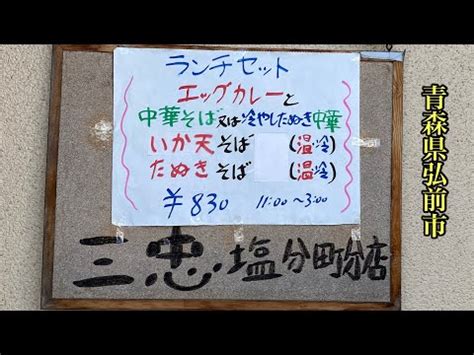 ランチセット
エッグカレーと
中華そば又は冷やしたぬき中華
いか天そば (温冷)
たぬきそば (温冷)
¥830 11:00~3:00
三忠塩分町分店
青森県弘前市